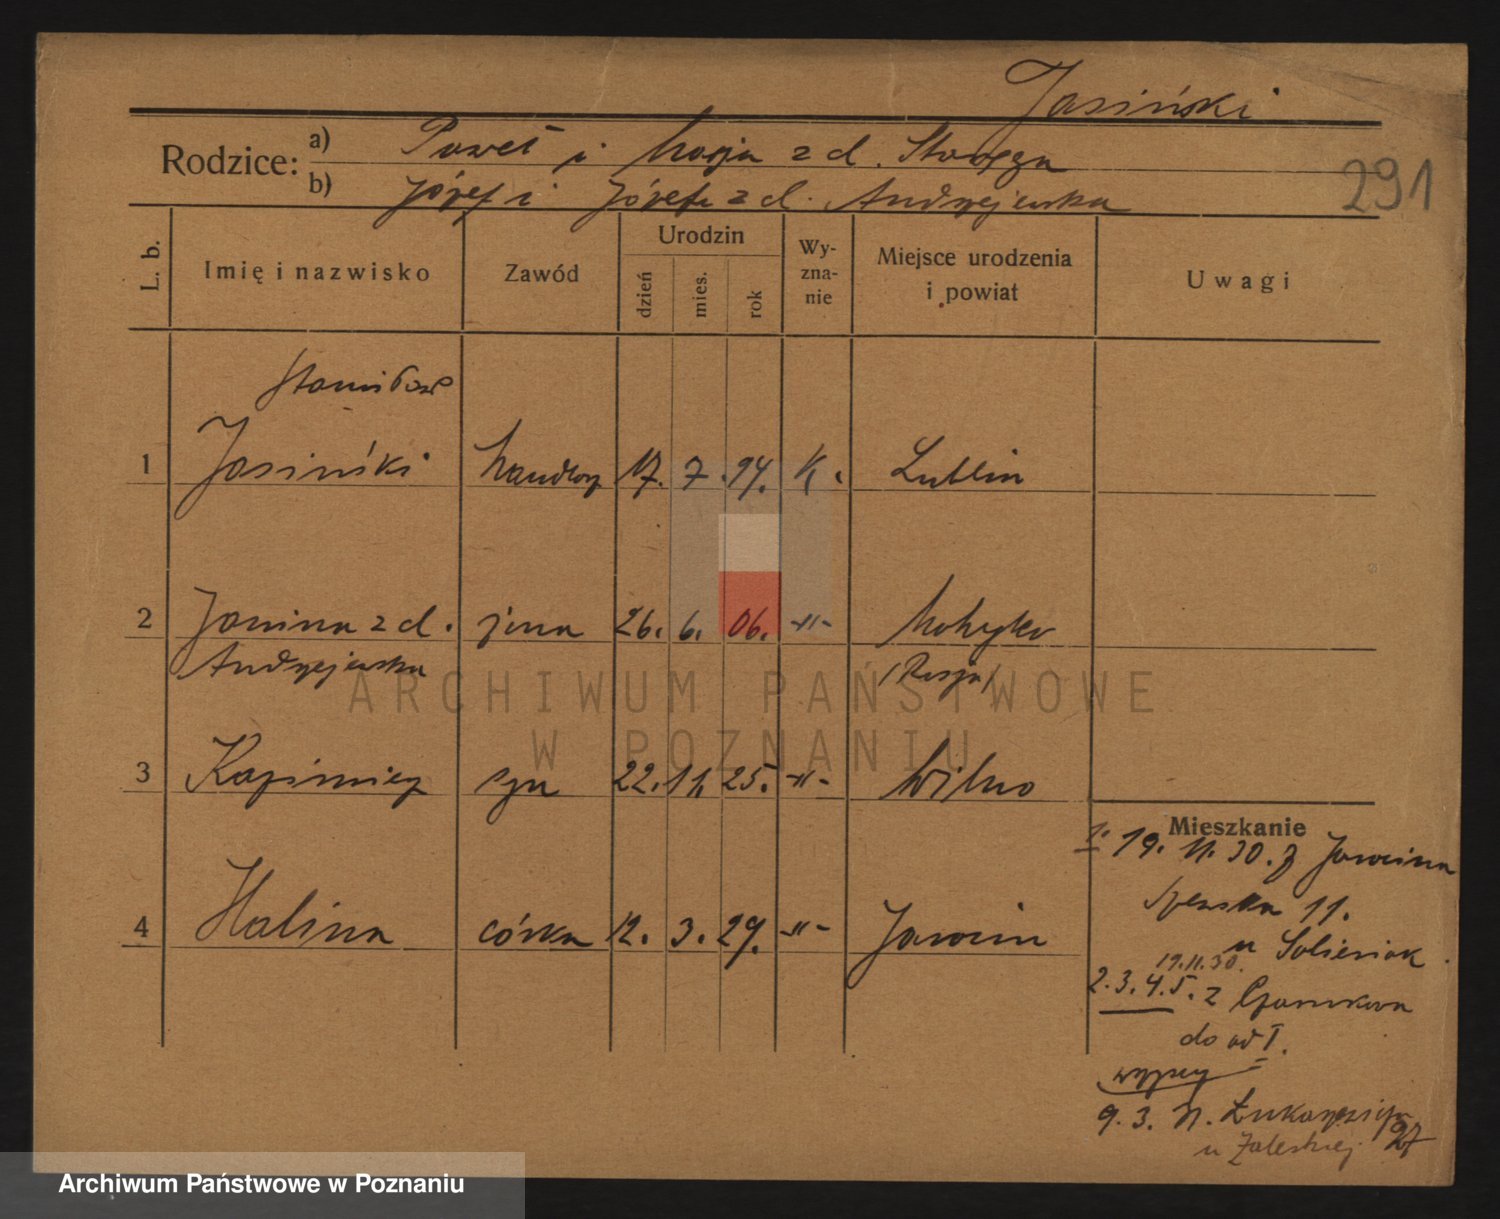 Jasiński
Rodzice: a) Paweł i Marja z d. Staręga
b) Józef i Józefa z d. Andrzejewska
291
L. b. Imię i nazwisko Zawód Urodzin dzień mies. rok Wy-zna-nie Miejsce urodzenia i powiat Uwagi
Stanisław
1 Jasiński handlow. 17. 7. 94. k. Lublin
2 Janina z d. żona 26. 6. 06. -"-
Andrzejewska (Rosja)
ARCHIWUM PAŃSTWOWE
W POZNANIU
3 Kazimierz syn 22. 11. 25. -"- Wilno
Mieszkanie
1. 19. 11. 30. z Jarocina
11.
4 Halina córka 12. 3. 29. -"- Jarocin
u Sobieniak
19.11.30.
2.3.4.5. z Czarnkowa
do ad I.
9. 3. 31. Łukaszewicza 27
u Zaleskiej
Archiwum Państwowe w Poznaniu